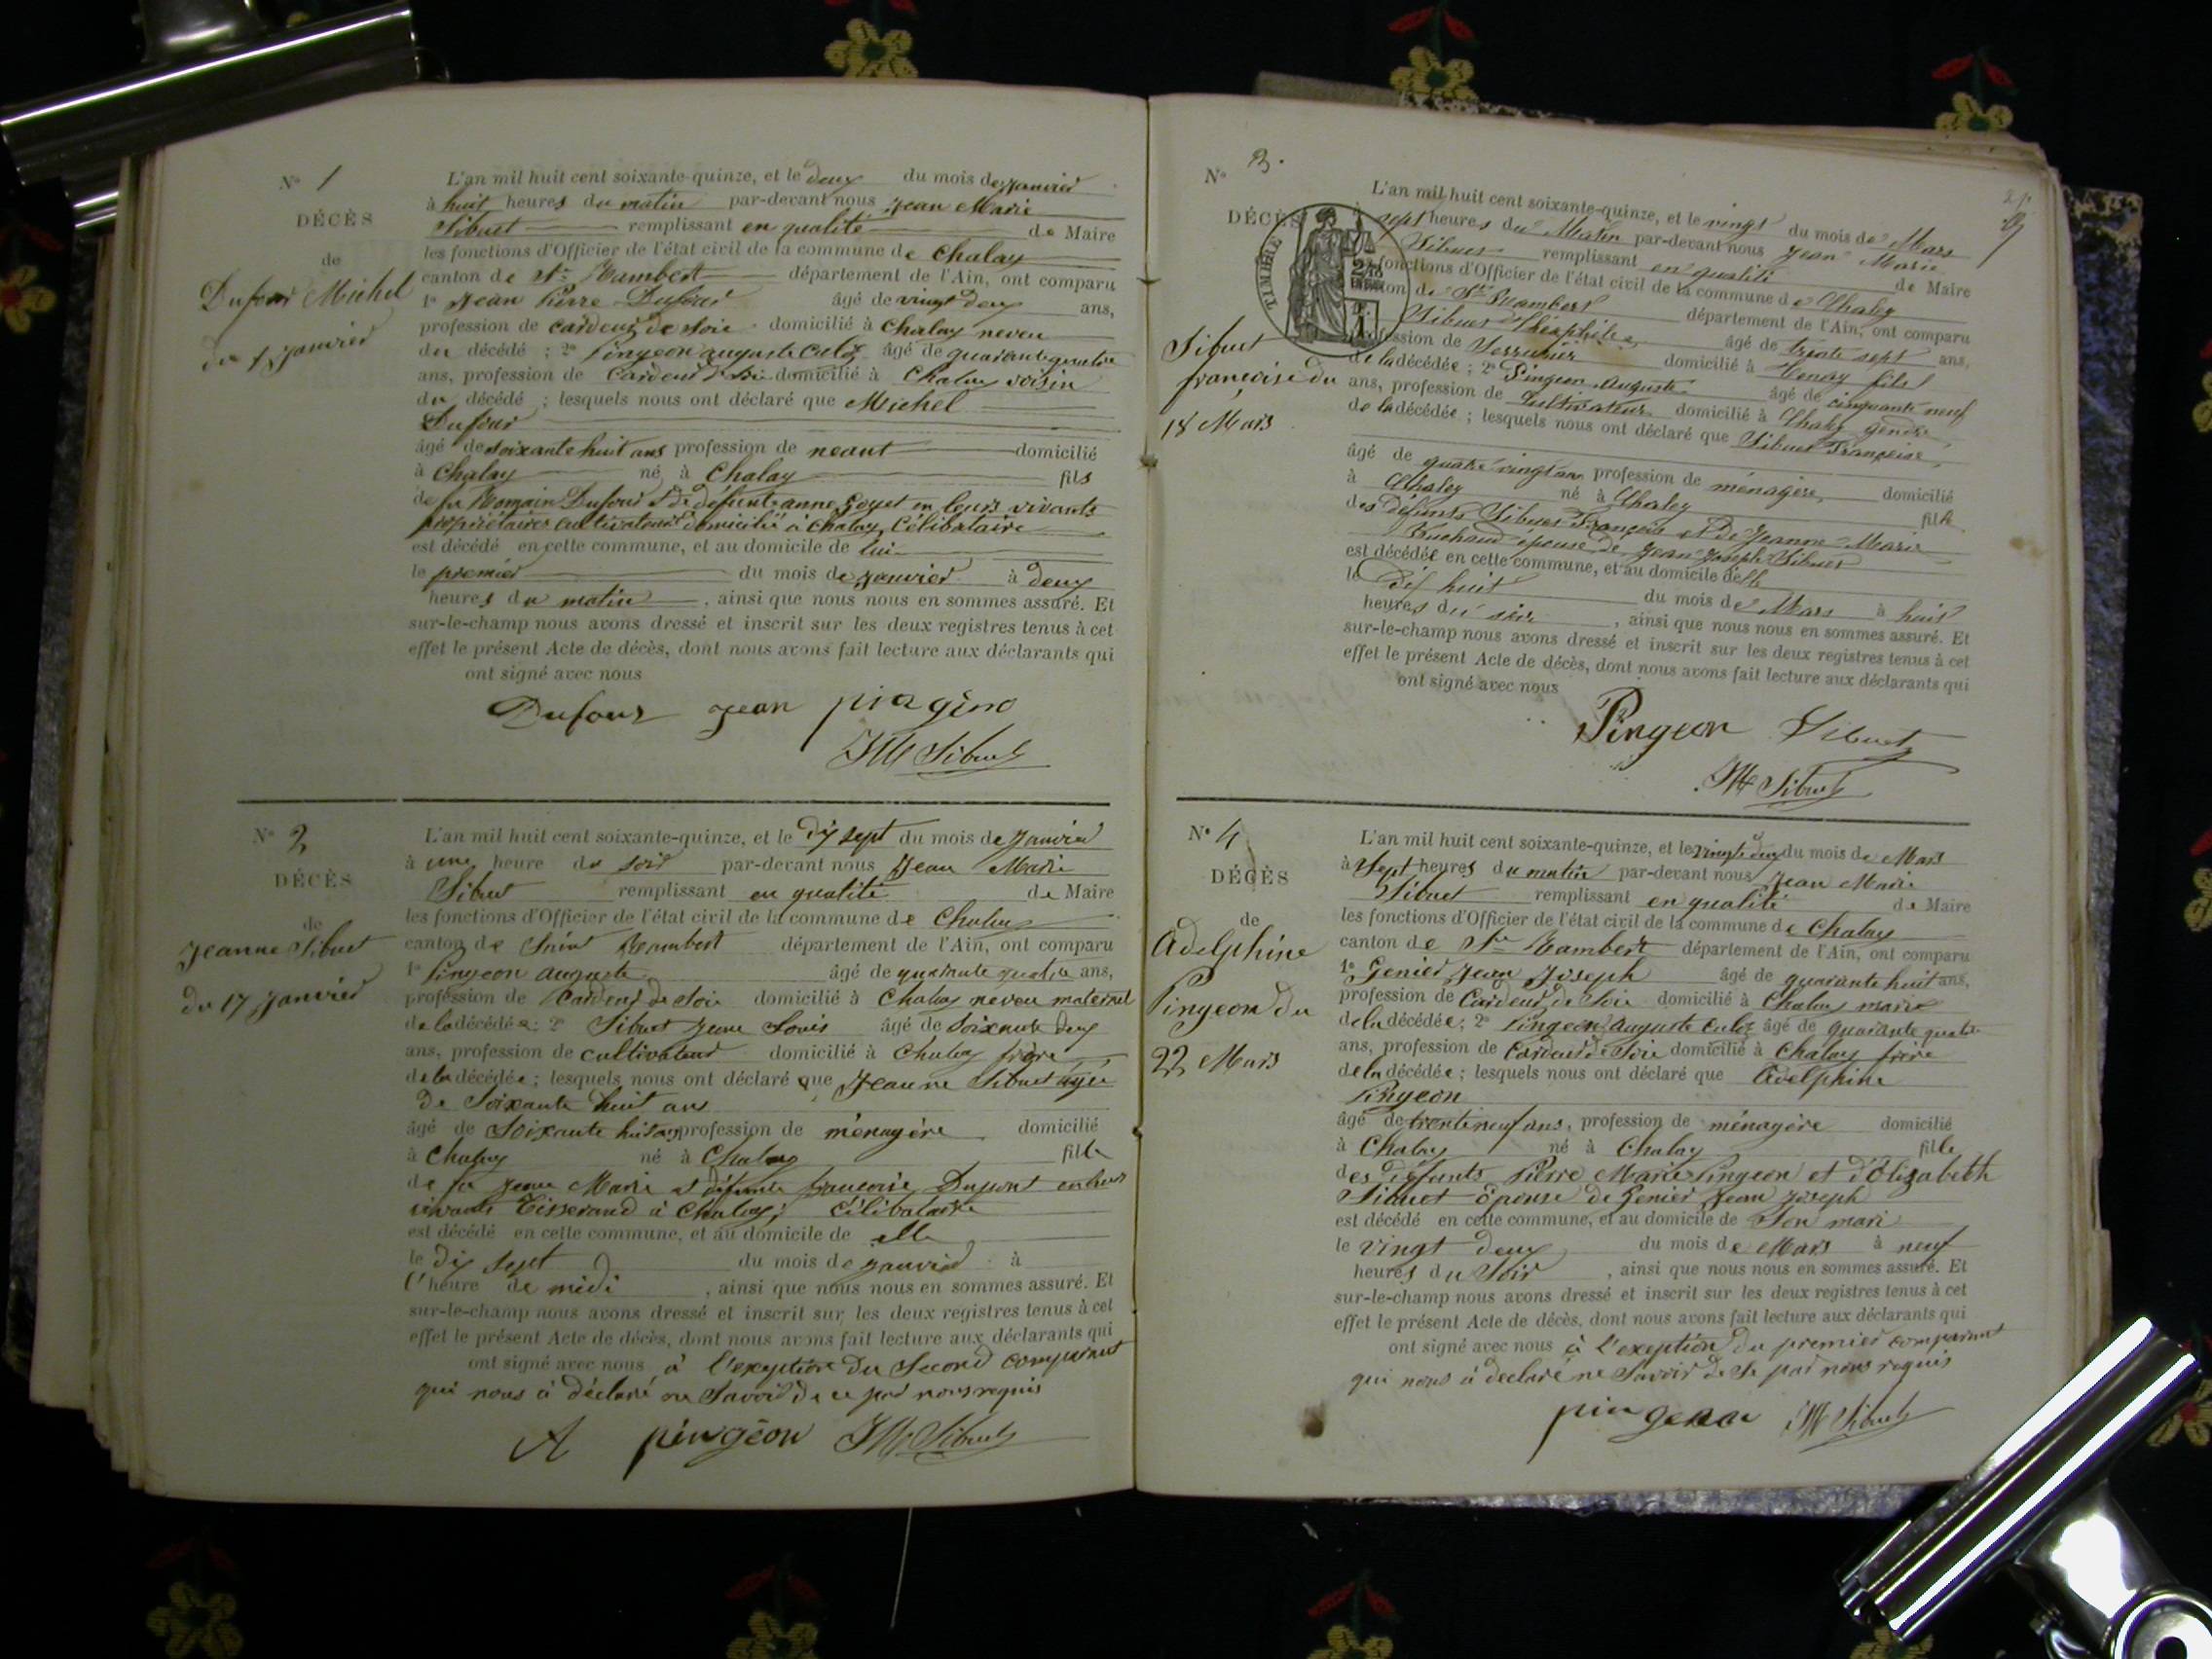 N° 1
DÉCÈS
de
Dufour Michel
du 1 Janvier
L'an mil huit cent soixante-quinze, et le deux du mois de Janvier
à huit heures du matin par-devant nous Jean Marie
Sibuet remplissant en qualité de Maire
les fonctions d'Officier de l'état civil de la commune de Chaley
canton de St Rambert département de l'Ain, ont comparu
1° Jean Pierre Dufour âgé de vingt deux ans,
profession de cardeur de soie domicilié à Chaley neveu
du décédé ; 2° Pingeon auguste culoz âgé de quarante quatre
ans, profession de cardeur de soie domicilié à Chaley voisin
du décédé ; lesquels nous ont déclaré que Michel
Dufour
âgé de soixante huit ans profession de neant domicilié
à Chaley né à Chaley fils
de fu Romain Dufour et de défunte anne Goyet en leurs vivants
propriétaires cultivateurs domicilié à Chaley, Célibataire
est décédé en cette commune, et au domicile de lui
le premier du mois de Janvier à deux
heures du matin, ainsi que nous nous en sommes assuré. Et
sur-le-champ nous avons dressé et inscrit sur les deux registres tenus à cet
effet le présent Acte de décès, dont nous avons fait lecture aux déclarants qui
ont signé avec nous
Dufour Jean
JM Sibuet
N° 2
DÉCÈS
de
Jeanne Sibuet
du 17 Janvier
L'an mil huit cent soixante-quinze, et le dix sept du mois de Janvier
à une heure du soir par-devant nous Jean Marie
Sibuet remplissant en qualité de Maire
les fonctions d'Officier de l'état civil de la commune de Chaley
canton de Saint Rambert département de l'Ain, ont comparu
1° Pingeon auguste âgé de quarante quatre ans,
profession de Cardeur de Soie domicilié à Chaley neveu maternel
de la décédée ; 2° Sibuet Jean Louis âgé de soixante deux
ans, profession de cultivateur domicilié à Chaley frère
de la décédée ; lesquels nous ont déclaré que Jeanne Sibuet agée
de Soixante huit ans
âgé de Soixante huit ans profession de ménagère domicilié
à Chaley né à Chaley fille
de fu Jean Marie et défunte francoise Dupont en leur
vivants Tisserand à Chaley; Célibataire
est décédé en cette commune, et au domicile de elle
le dix sept du mois de Janvier à
l'heure de midi, ainsi que nous nous en sommes assuré. Et
sur-le-champ nous avons dressé et inscrit sur les deux registres tenus à cet
effet le présent Acte de décès, dont nous avons fait lecture aux déclarants qui
ont signé avec nous à l'exeption du Second comparant
qui nous à déclaré ne Savoir de ce par nous requis
A pingeon JM Sibuet
N° 3.
DÉCÈS
Sibuet
françoise du
18 Mars
TIMBRE
L'an mil huit cent soixante-quinze, et le vingt du mois de Mars
à sept heures du Matin par-devant nous Jean Marie
Sibuet remplissant en qualité de Maire
fonctions d'Officier de l'état civil de la commune de Chaley
canton de St Rambert département de l'Ain, ont comparu
Sibuet Théophile âgé de trente sept ans,
profession de Serrurier domicilié à fils
de la décédée ; 2° Pingeon Auguste âgé de cinquante neuf
ans, profession de Cultivateur domicilié à Chaley gendre
de la décédée ; lesquels nous ont déclaré que Sibuet Françoise,
âgé de quatre vingt ans profession de ménagère domicilié
à Chaley né à Chaley fille
des Défunts Sibuet François et de Jeanne-Marie
épouse de Jean Joseph Sibuet
est décédée en cette commune, et au domicile d'elle
le Dix huit du mois de Mars à huit
heures du soir, ainsi que nous nous en sommes assuré. Et
sur-le-champ nous avons dressé et inscrit sur les deux registres tenus à cet
effet le présent Acte de décès, dont nous avons fait lecture aux déclarants qui
ont signé avec nous
Pingeon Sibuet
JM Sibuet
N° 4
DÉCÈS
de
Adelphine
Pingeon du
22 Mars
L'an mil huit cent soixante-quinze, et le vingt deux du mois de Mars
à Sept heures du matin par-devant nous Jean Marie
Sibuet remplissant en qualité de Maire
les fonctions d'Officier de l'état civil de la commune de Chaley
canton de St Rambert département de l'Ain, ont comparu
1° Genier Jean Joseph âgé de quarante huit ans,
profession de Cardeur de Soie domicilié à Chaley mari
de la décédée ; 2° Pingeon Auguste Culoz âgé de quarante quatre
ans, profession de Cardeur de Soie domicilié à Chaley frère
de la décédée ; lesquels nous ont déclaré que Adelphine
Pingeon
âgé de trente neuf ans, profession de ménagère domicilié
à Chaley né à Chaley fille
des défunts Pierre Marie Pingeon et d'Elizabeth
Sibuet Epouse de Genier Jean Joseph
est décédé en cette commune, et au domicile de Son mari
le vingt deux du mois de Mars à neuf
heures du Soir, ainsi que nous nous en sommes assuré. Et
sur-le-champ nous avons dressé et inscrit sur les deux registres tenus à cet
effet le présent Acte de décès, dont nous avons fait lecture aux déclarants qui
ont signé avec nous à l'exeption du premier comparant
qui nous à declaré ne Savoir de Se par nous requis
pingeon JM Sibuet